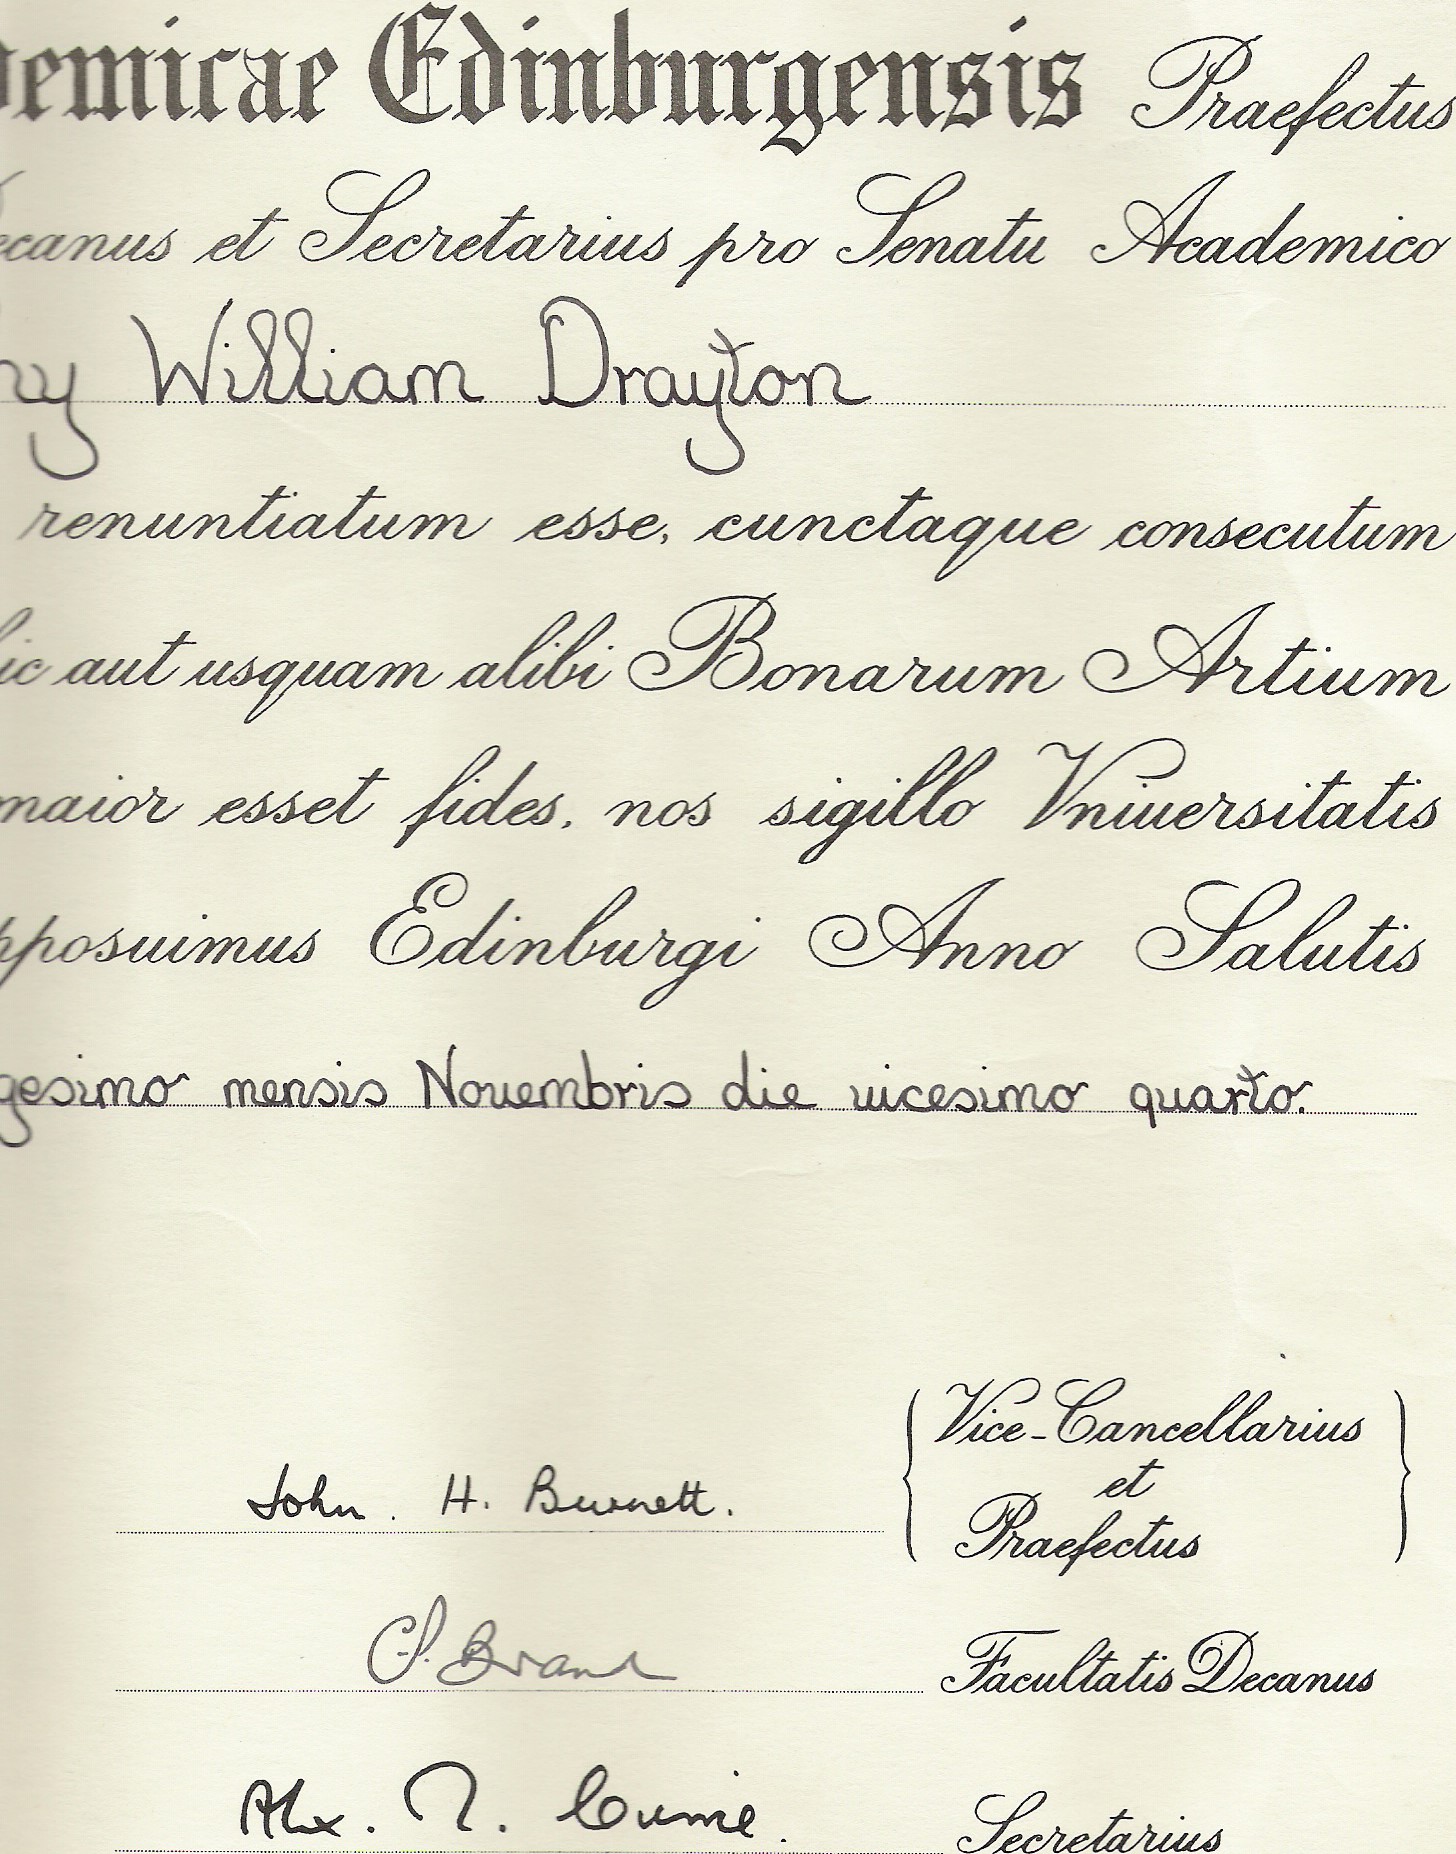 demicae Edinburgensis Praefectus
ecanus et Secretarius pro Senatu Academico
ny William Drayton
renuntiatum esse, cunctaque consecutum
ic aut usquam alibi Bonarum Artium
maior esset fides, nos sigillo Vniuersitatis
pposuimus Edinburgi Anno Salutis
gesimo mensis Nouembris die uicesimo quarto.
Vice-Cancellarius
John. H. Burnett. et
Praefectus
C.P. Brand Facultatis Decanus
Alex. M. Currie. Secretarius